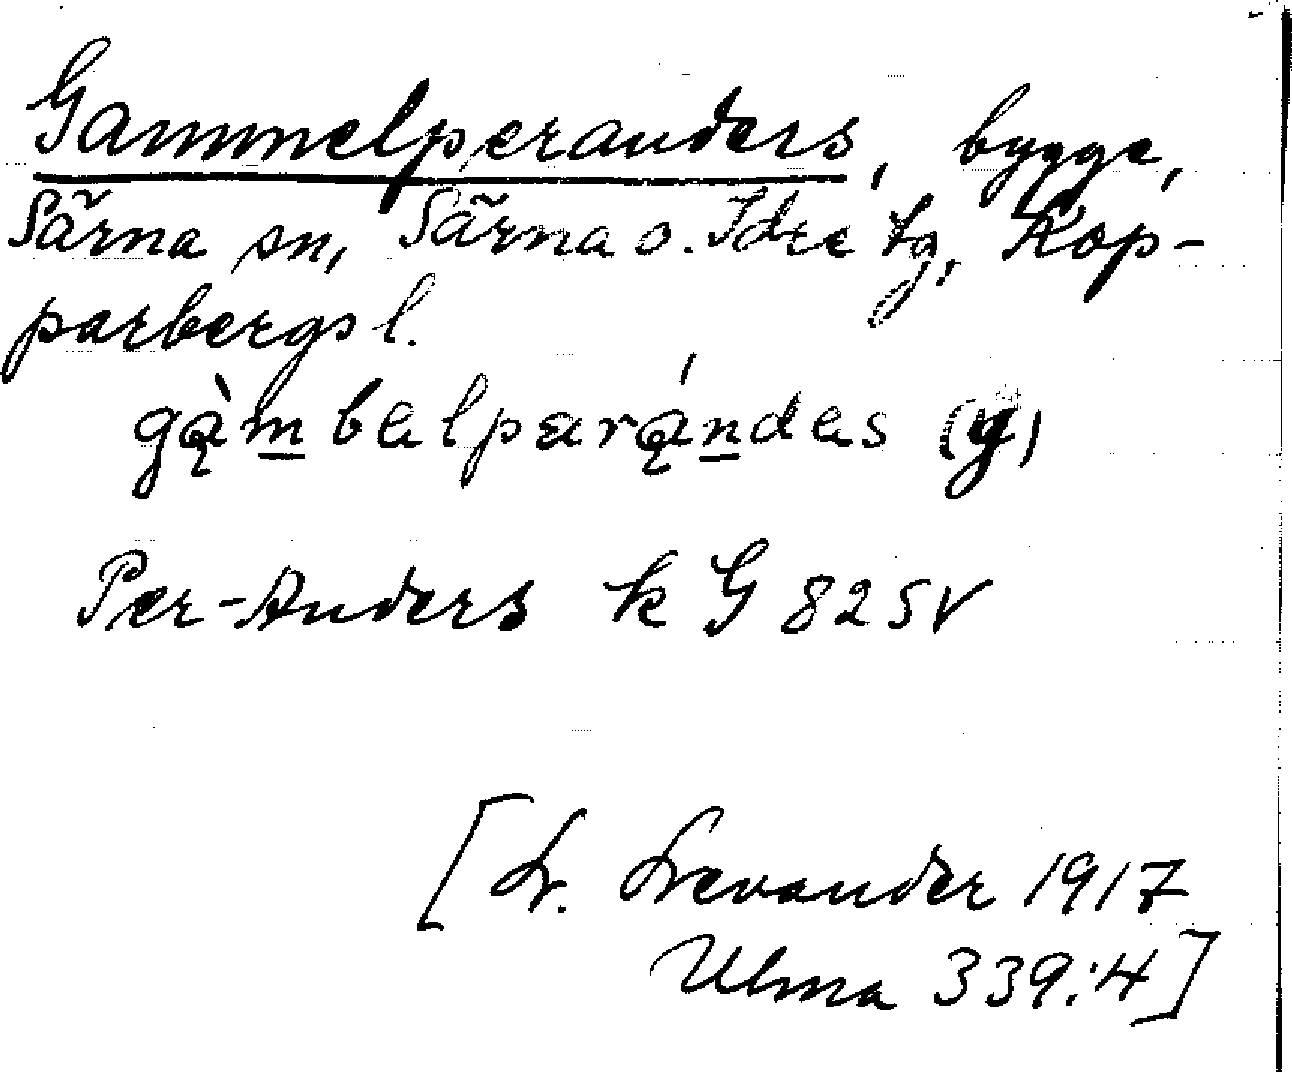 Gammelperanders, bygge,
Särna sn, Särna o. Idre tg, Kop-
parbergs l.
gàmbelparándas (y)
Per-Anders k G 825 V
[L. Levander 1917
Ulma 339:4]